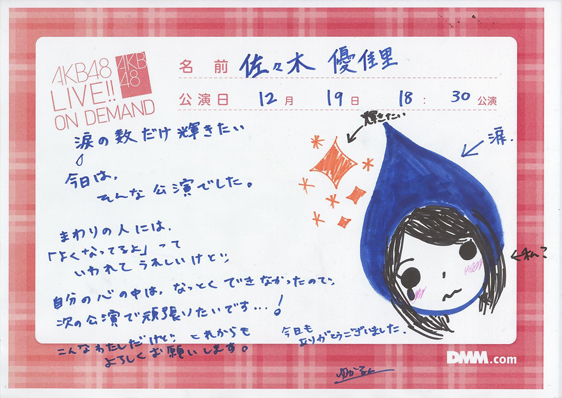 AKB48
LIVE!!
ON DEMAND
AKB
48
名前 佐々木 優佳里
公演日 12月 19日 18:30公演
涙の数だけ輝きたい
今日は、
そんな公演でした。
まわりの人には、
「よくなってるよ」って
いわれてうれしいけど、
自分の心の中は、なっとくできなかったので、
次の公演で頑張りたいです…!
こんなわたしだけど、これからも
よろしくお願いします。
輝きたい
涙.
私?
今日も
ありがとうございました.
ゆかるん
DMM.com